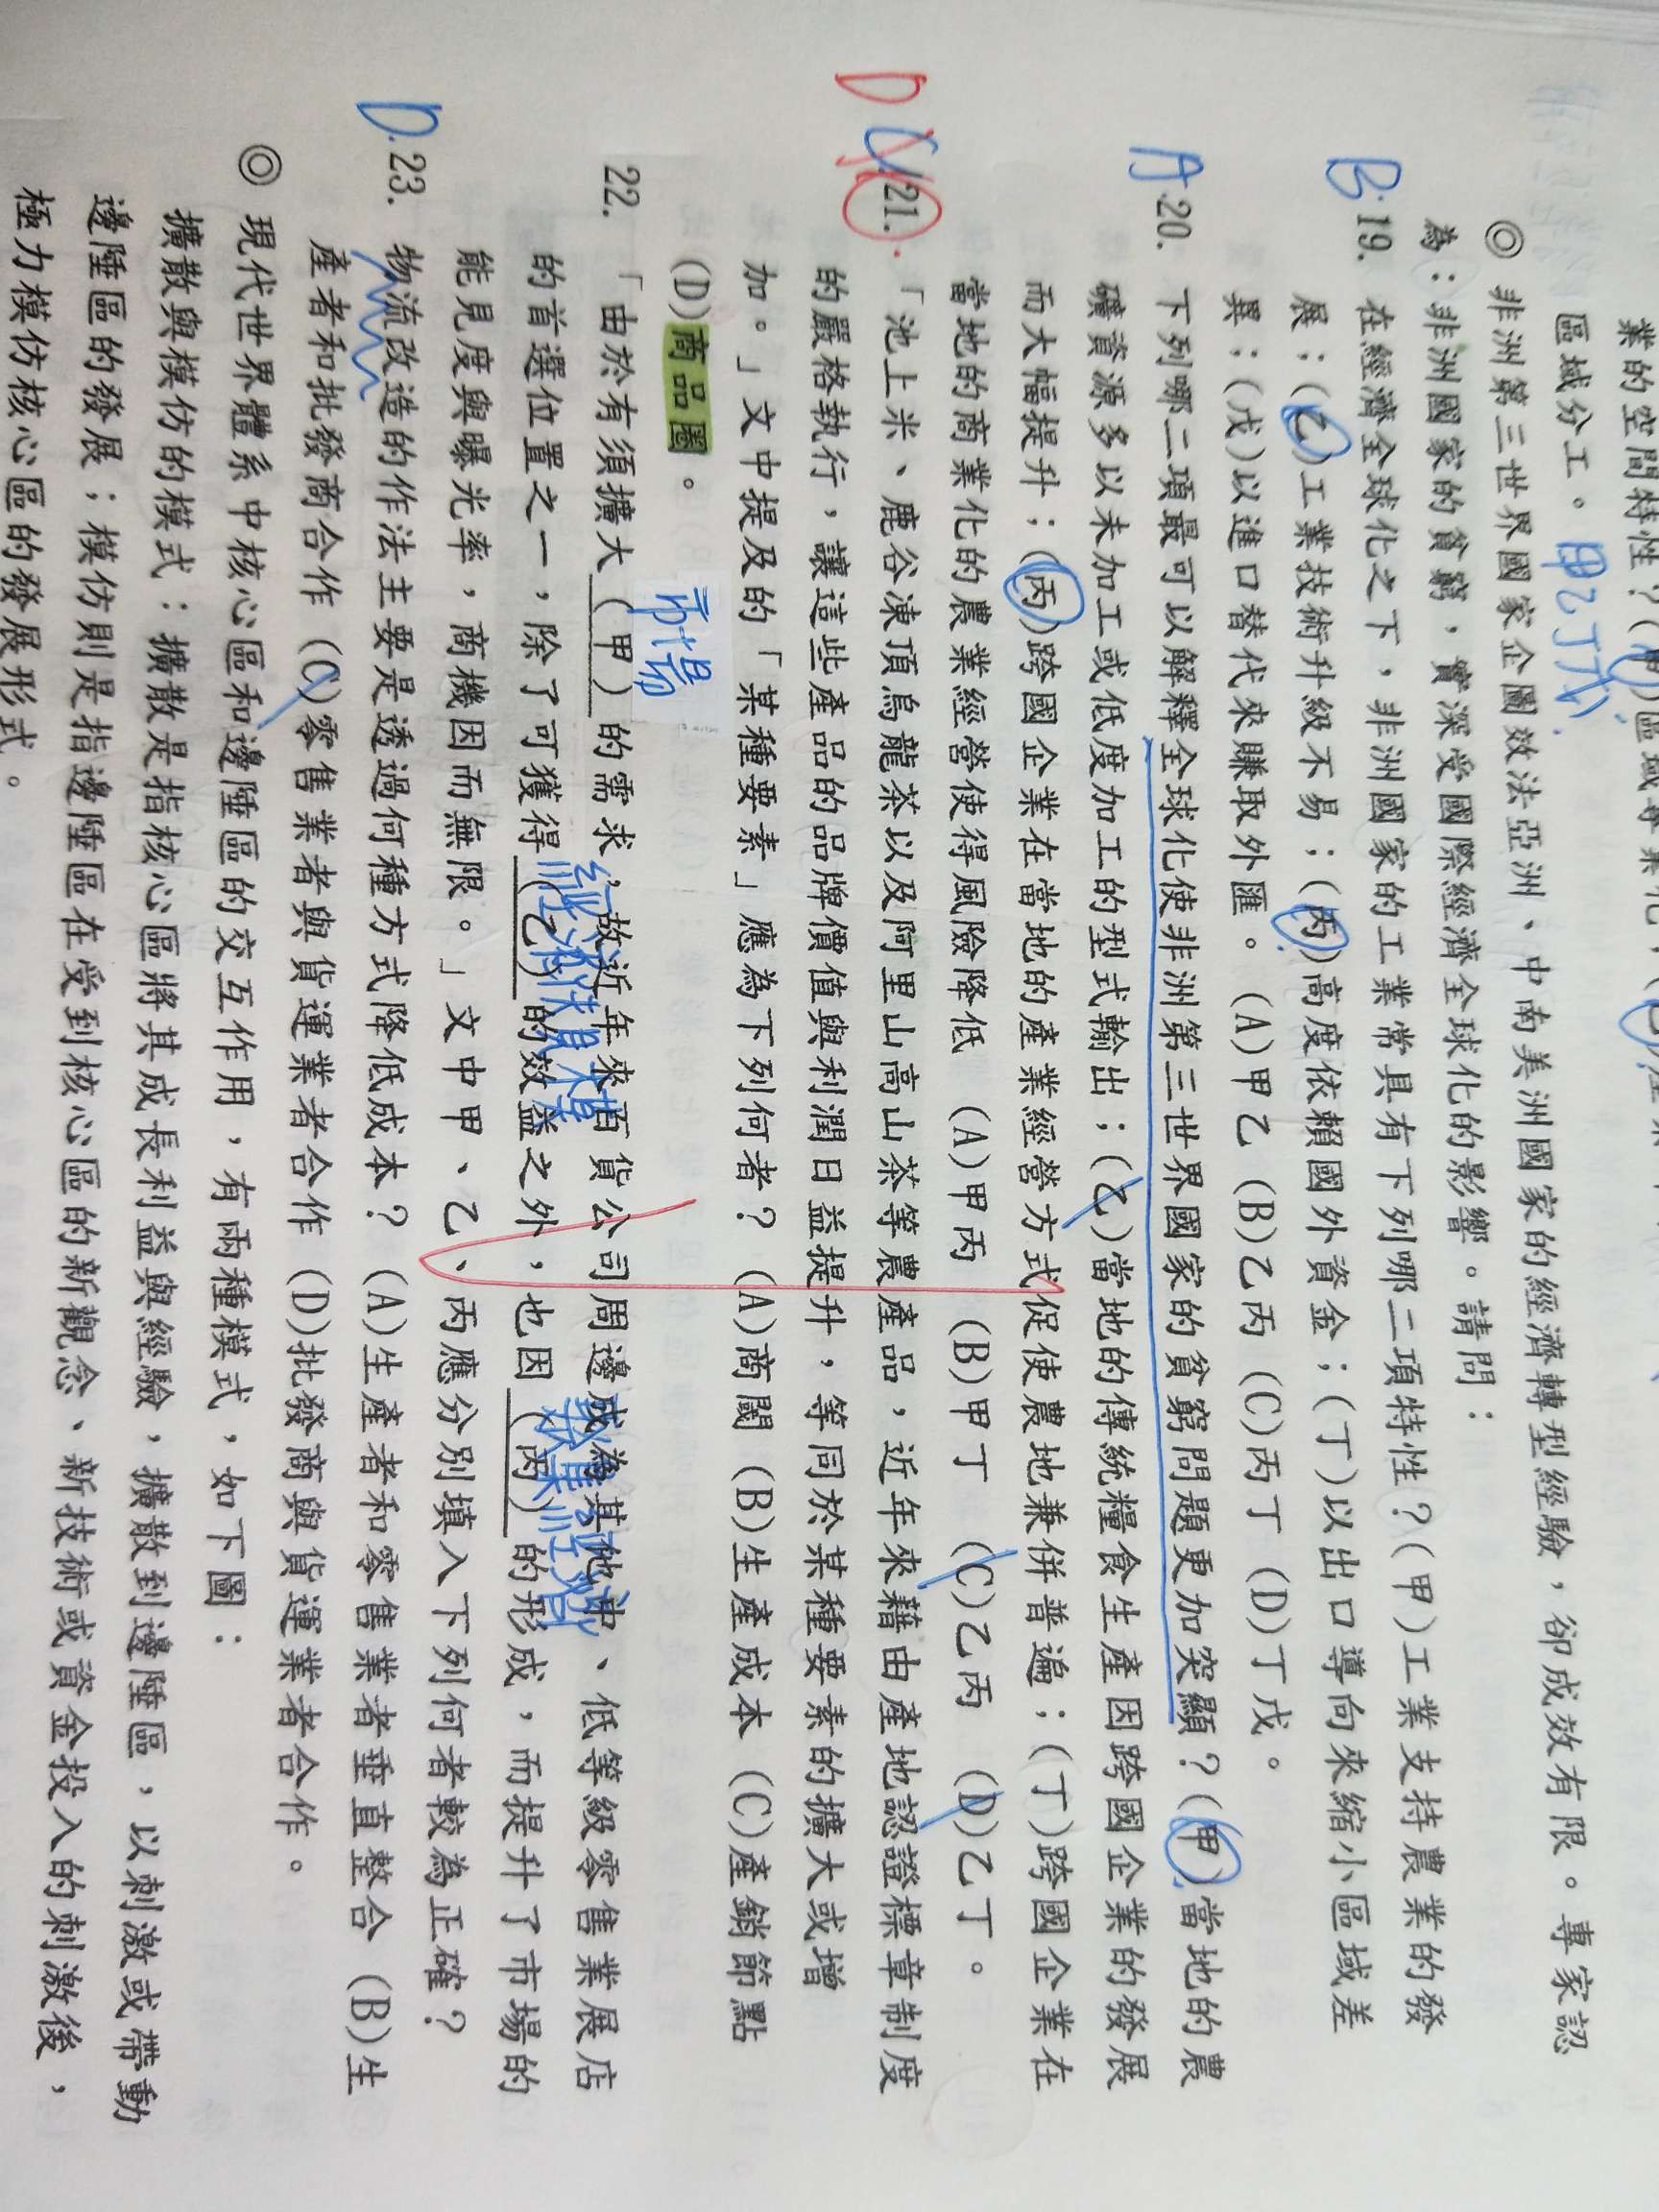 業的空間特性?(甲)區域專業化;(乙)產業
區域分工。 甲乙丁戊
◎ 非洲第三世界國家企圖效法亞洲、中南美洲國家的經濟轉型經驗,卻成效有限。專家認
為:非洲國家的貧窮,實深受國際經濟全球化的影響。請問:
B 19. 在經濟全球化之下,非洲國家的工業常具有下列哪二項特性?(甲)工業支持農業的發
展;(乙)工業技術升級不易;(丙)高度依賴國外資金;(丁)以出口導向來縮小區域差
異;(戊)以進口替代來賺取外匯。 (A)甲乙 (B)乙丙 (C)丙丁 (D)丁戊。
A 20. 下列哪二項最可以解釋全球化使非洲第三世界國家的貧窮問題更加突顯?(甲)當地的農
礦資源多以未加工或低度加工的型式輸出;(乙)當地的傳統糧食生產因跨國企業的發展
而大幅提升;(丙)跨國企業在當地的產業經營方式促使農地兼併普遍;(丁)跨國企業在
當地的商業化的農業經營使得風險降低 (A)甲丙 (B)甲丁 (C)乙丙 (D)乙丁。
D 21. 「池上米、鹿谷凍頂烏龍茶以及阿里山高山茶等農產品,近年來藉由產地認證標章制度
的嚴格執行,讓這些產品的品牌價值與利潤日益提升,等同於某種要素的擴大或增
加。」文中提及的「某種要素」應為下列何者? (A)商閾 (B)生產成本 (C)產銷節點
(D)商品圈。
市場
22. 「由於有須擴大(甲)的需求,故近年來百貨公司周邊成為其他中、低等級零售業展店
的首選位置之一,除了可獲得(乙)的效益之外,也因(丙)的形成,而提升了市場的
能見度與曝光率,商機因而無限。」文中甲、乙、丙應分別填入下列何者較為正確?
D. 23. 物流改造的作法主要是透過何種方式降低成本? (A)生產者和零售業者垂直整合 (B)生
產者和批發商合作 (C)零售業者與貨運業者合作 (D)批發商與貨運業者合作。
◎ 現代世界體系中核心區和邊陲區的交互作用,有兩種模式,如下圖:
擴散與模仿的模式:擴散是指核心區將其成長利益與經驗,擴散到邊陲區,以刺激或帶動
邊陲區的發展;模仿則是指邊陲區在受到核心區的新觀念、新技術或資金投入的刺激後,
極力模仿核心區的發展形式。